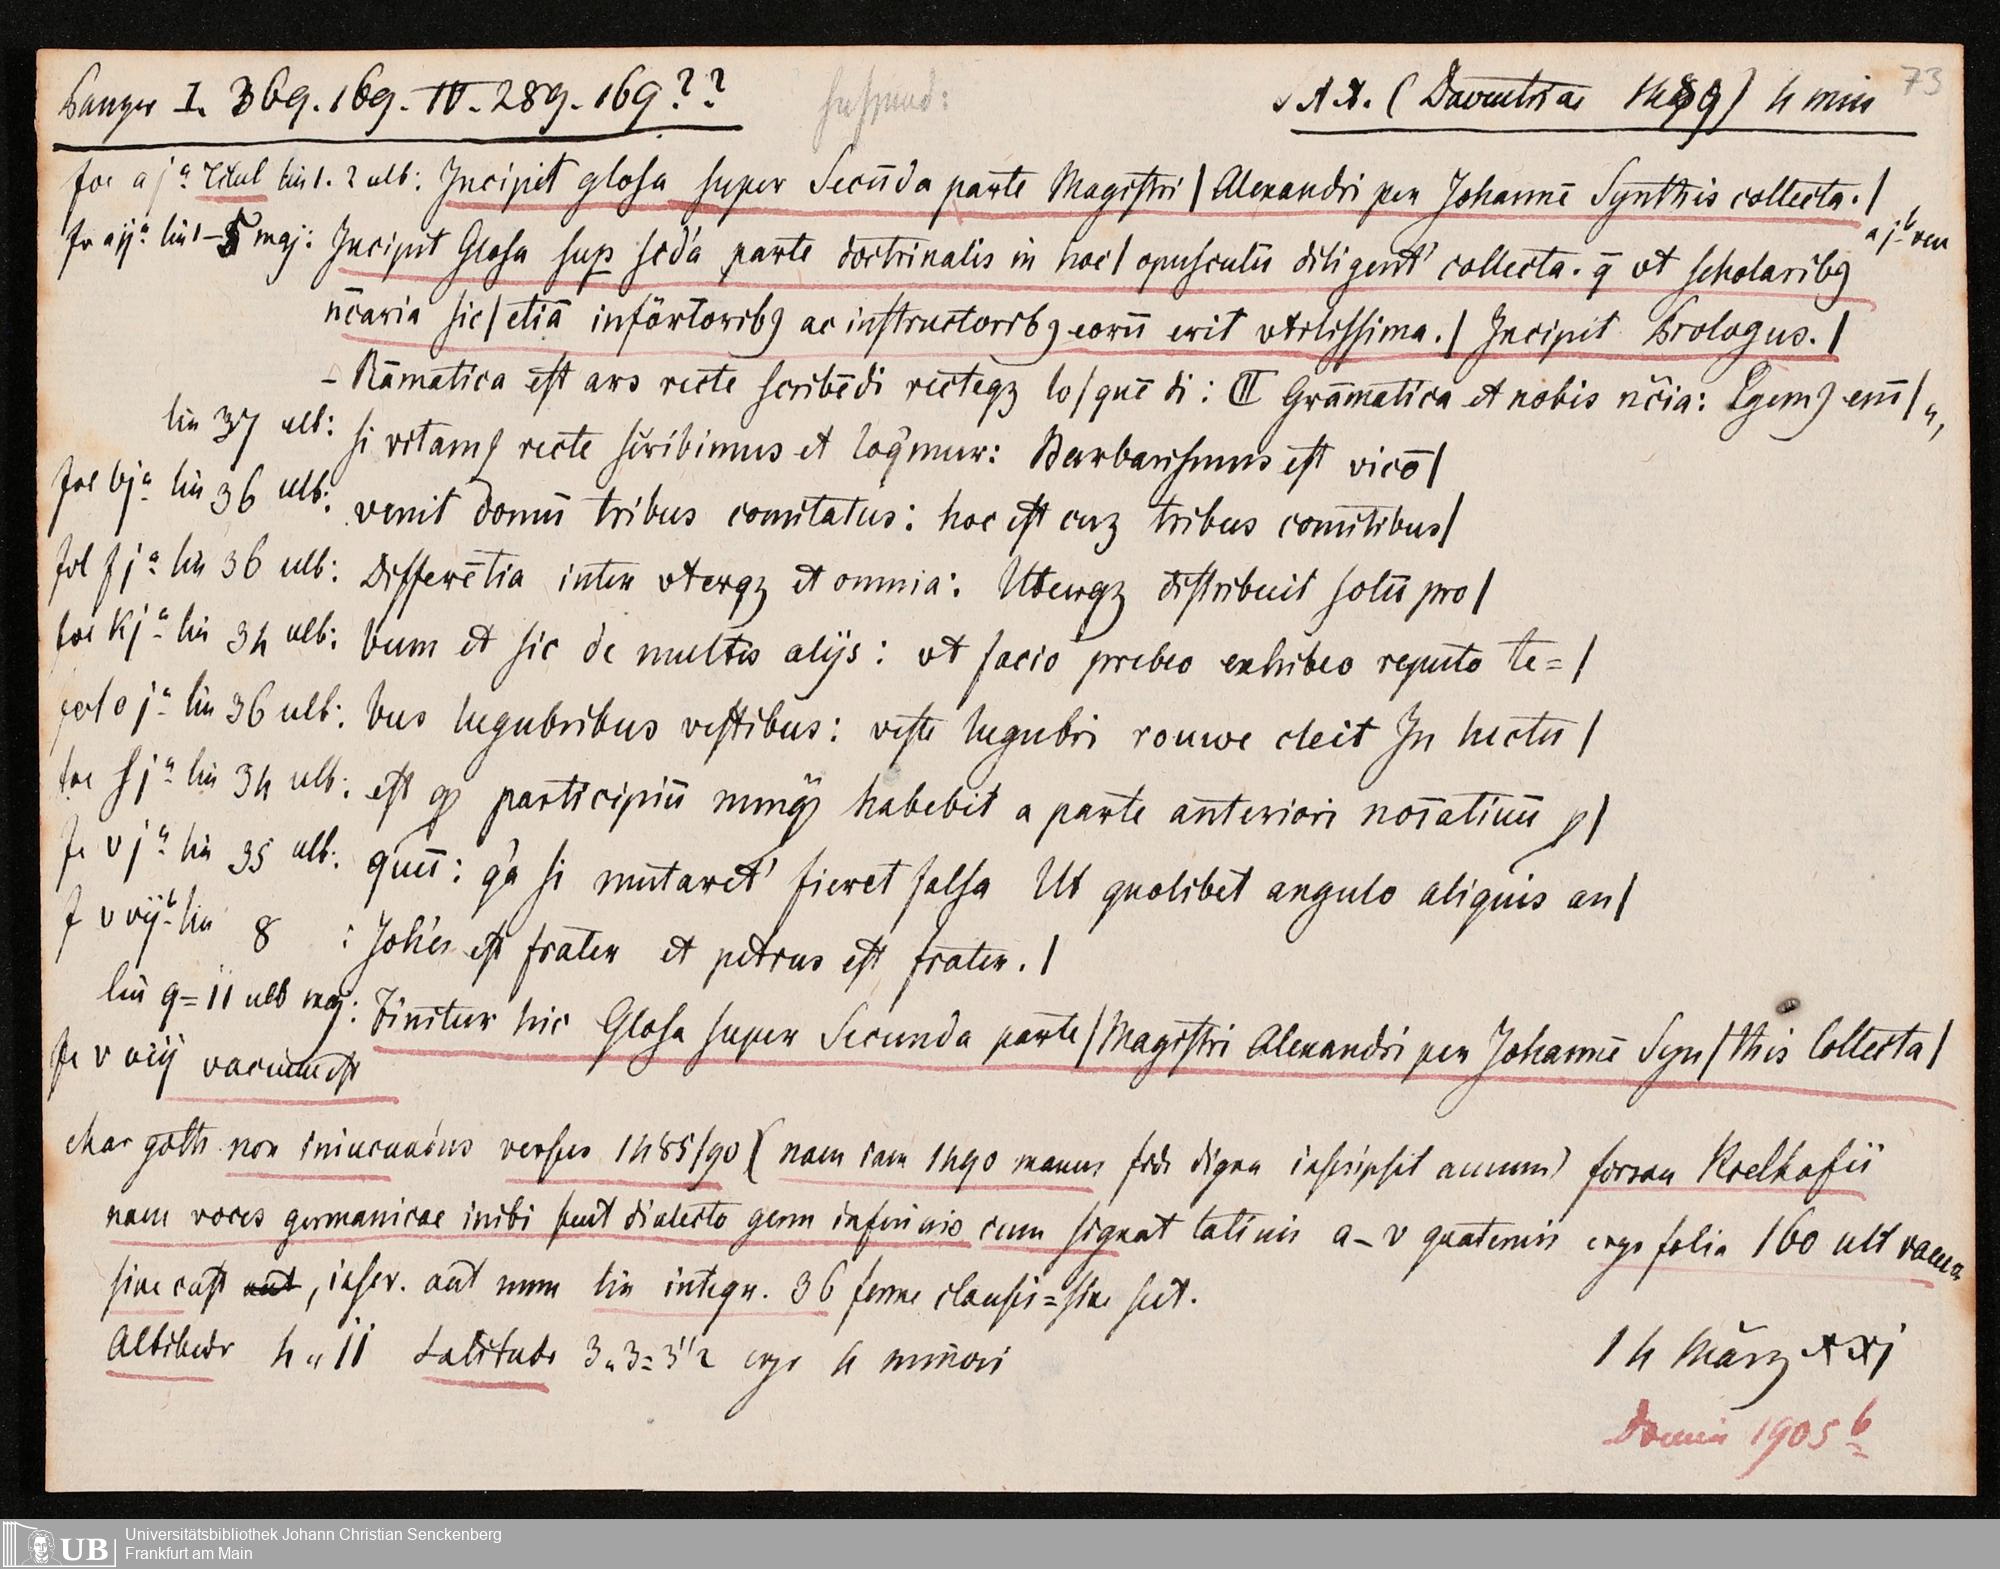 Panzer I. 369. 169. IV. 289. 169??
suspend:
s A A. (Daventriae 1489) 4 min
73
fol a jª Titul lin 1. 2 ult: Incipit glosa super Secūda parte Magistri | Alexandri per Johannē Synthis collecta. |
a jᵇ vac
fo a ijª lin 1–5 maj: Incipit Glosa sup scd'a parte doctrinalis in hoc | opusculū diligent' collecta. q̄ vt scholaribꝫ
nc̄aria sic | etiā infōrtoribꝫ ac instructoribꝫ eorū erit vtilissima. | Incipit Prologus. |
– Rāmatica est ars recte scribēdi recteqꝫ lo | quē di: ₵ Grāmatica et nobis nc̄ia: Egemꝰ em̄ |
lin 37 ult: si vitamꝰ recte scribimus et loq̄mur: Barbarismus est vicō |
fol bjª lin 36 ult: venit domū tribus comitatus: hoc est cuꝫ tribus comitibus |
fol f jª lin 36 ult: Differētia inter vterqꝫ et omnia: Uterqꝫ distribuit solū pro |
fol kjª lin 34 ult: bum et sic de multis alijs: vt facio prebeo exhibeo reputo te= |
fol o jª lin 36 ult: bus lugubribus vestibus: veste lugubri rouwe cleit In luctu |
fol s jª lin 34 ult: est ꝙ participiū nunqꝫ habebit a parte anteriori noīatiuū p |
fo v jª lin 35 ult: quū: q'a si mutaret' fieret falsa Ut quolibet angulo aliquis an |
f v vijᵇ lin 8 : Joh'es est frater et petrus est frater. |
lin 9–11 ult maj: Finitur hic Glosa super Secunda parte | Magistri Alexandri per Johannē Syn | this Collecta |
fo v viij vacuum est
char goth non iniucundus versus 1485/90 (nam iam 1490 manus fide digna inscripsit annum) forsan Koelhofii
nam voces germanicae inibi sunt dialecto germ inferioris cum signat latinis a–v quaternis ergo folia 160 ult vacua
sine cust aut, inser. aut num lin integr. 36 ferme clausis=sine sect.
Altitudo 4 „ 11 Latitudo 3 „ 3 = 3''2 ergo 4 minori
14 März XXj
Domin 1905 b
UB Universitätsbibliothek Johann Christian Senckenberg
Frankfurt am Main